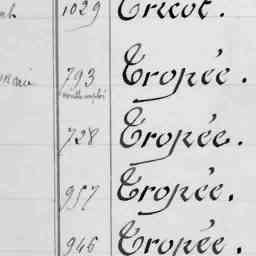 1029 Tricot.
793 Tropée.
728 Tropée.
957 Tropée.
946 Tropée.